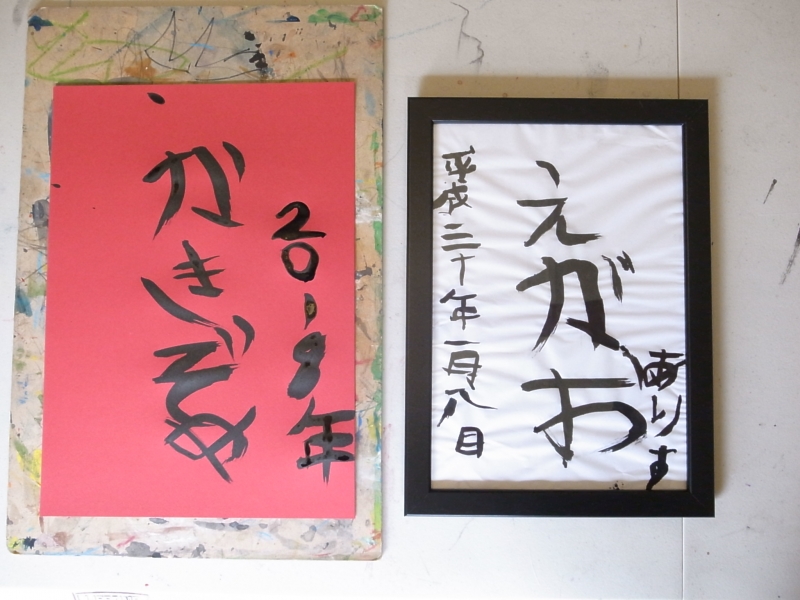 2018年
かきぞめ
ありす
えがお
平成三十年一月八日